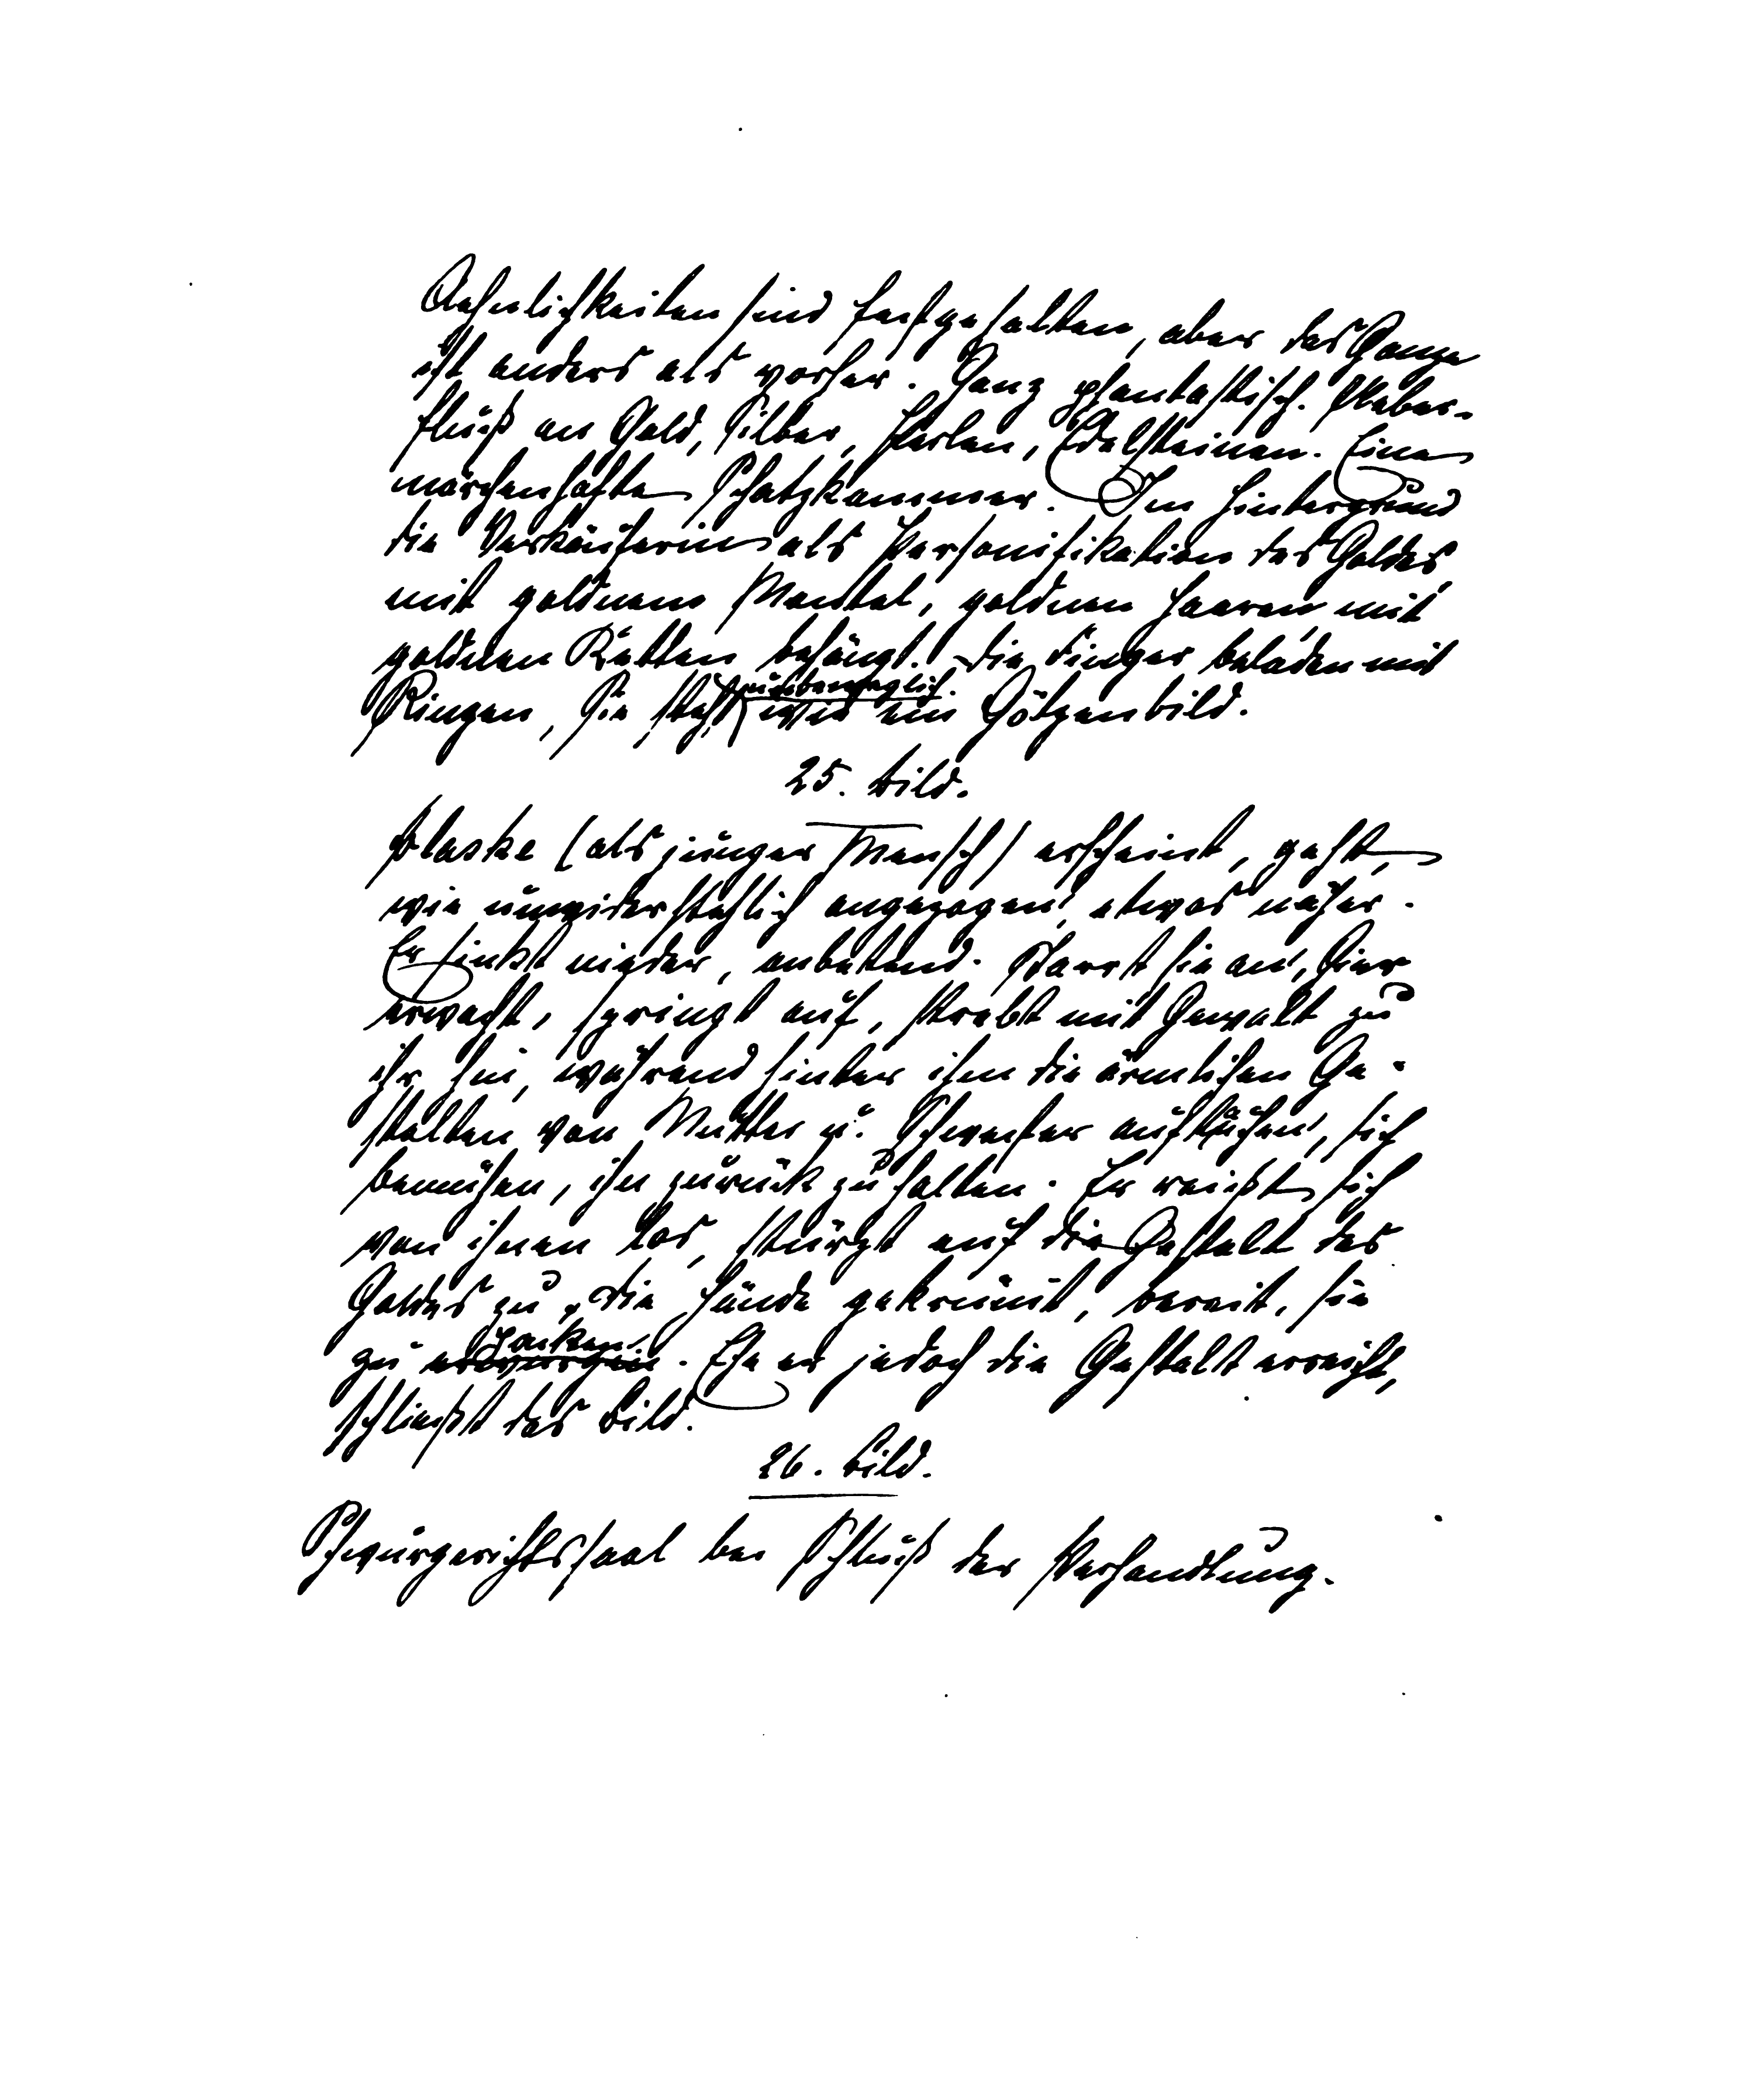 Aehnlichkeiten sind festgehalten, aber das Ganze
ist anders als vorher. Ganz phantastisch. Ueber-
fluß an Gold, Silber, Perlen, Edelsteinen. Eine
märchenhafte Schatzkammer. Im Hintergrund
die Verkäuferin als Personifikation des Goldes,
mit goldnem Mantel, goldnen Haaren, mit
goldnen Ketten behängt. Die Finger beladen mit
unbeweglich
Ringen, Sie steht wie ein Götzenbild.
25. Bild.
Blaske (als junger Mensch) erscheint, geht,
wie unwiderstehlich angezogen, etwas näher.
Er sinkt nieder, anbetend. Starrt sie an, Gier
erwacht, springt auf, strebt mit Gewalt zu
ihr hin, während hinter ihm die ärmlichen Ge-
stalten von Mutter u. Schwester auftauchen, sich
bemühen, ihn zurück zu halten. Er reißt sich
von ihnen los, stürzt auf die Gestalt des
Goldes zu, die Hände gekrümt, bereit, sie
packen
zu erwürgen. Ehe er jedoch die Gestalt erreicht,
schließt das Bild.
26. Bild.
Schwurgerichtssaal bei Schluß der Verhandlung.